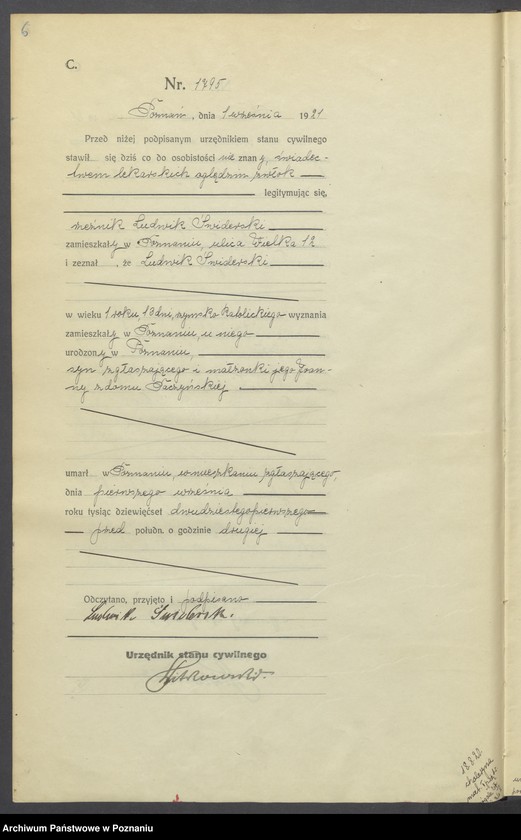 6
C.
Nr. 1295
Poznań, dnia 1 września 1921
Przed niżej podpisanym urzędnikiem stanu cywilnego
stawił się dziś co do osobistości nie znany, świadec-
twem lekarskich oględzin zwłok
legitymując się,
rzeźnik Ludwik Swiderski
zamieszkały w Poznaniu, ulica Wielka 12
i zeznał, że Ludwik Swiderski
w wieku 1 roku 13 dni, rzymsko katolickiego wyznania
zamieszkały w Poznaniu, u niego
urodzony w Poznaniu,
syn zgłaszającego i małżonki jego Joan-
ny z domu
umarł w Poznaniu, w mieszkaniu zgłaszającego,
dnia pierwszego września
roku tysiąc dziewięćset dwudziestegopierwszego
przed połudn. o godzinie drugiej
Odczytano, przyjęto i podpisano
Ludwik Swiderski.
Urzędnik stanu cywilnego
Archiwum Państwowe w Poznaniu